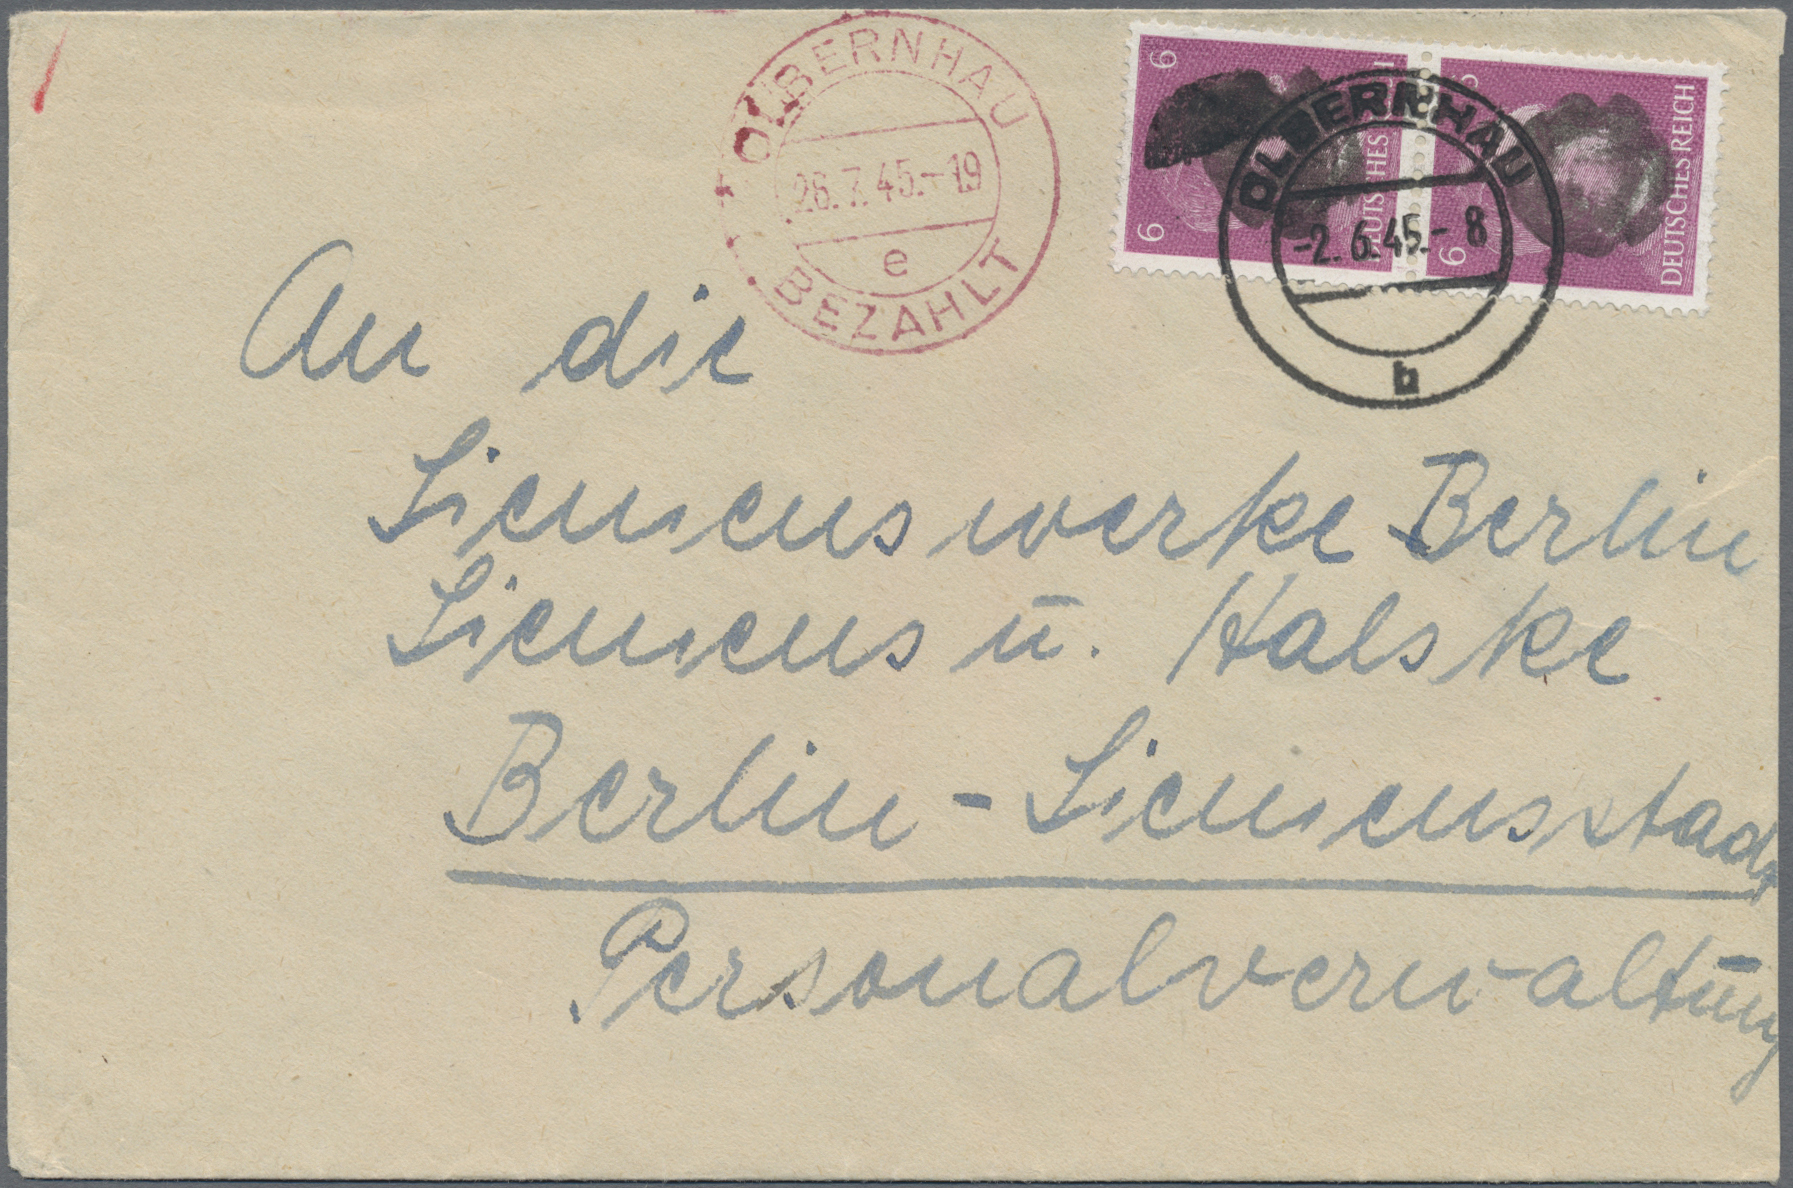 OLBERNHAU
26.7.45.-19
e
BEZAHLT
6 6
DEUTSCHES REICH
6
DEUTSCHES REICH
OLBERNHAU
-2.6.45.-8
b
An die
Siemenswerke Berlin
Siemens ū. Halske
Berlin-Siemensstadt
Personalverwaltūng